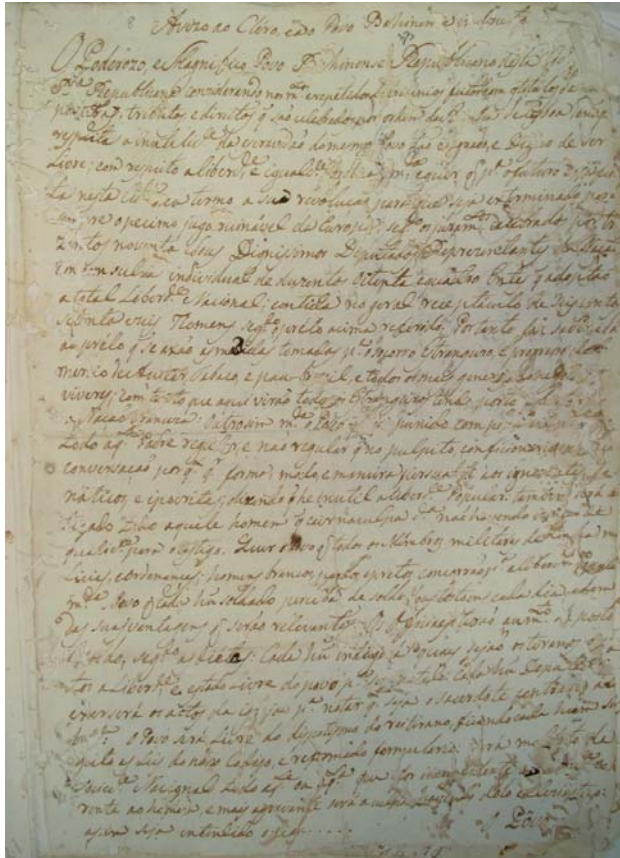 Avizo ao Clero, e ao Povo Bahinense indouto
O Poderozo, e Magnifico Povo Bahinense Republicano desta
Republicano considerando nos m.tos e repetidos latrocinios feitos com os titulos de im
posturas, tributos, e direitos q' saõ celebrados por ordem da de Lisboa, e no q'
respeita a inutilid.e da escravidaõ do mesmo Povo taõ sagrado, e Digno de ser
Livre, com respeito a liberd.e e iguald.e ordena m.da e quer q' p.a o futuro seja fei
ta nesta Cid.e e seu termo a sua revoluçaõ para que seja exterminado para
sempre o pecimo jugo reinavel na Europa; seg.do os juram.tos celebrados por tre
zentos noventa e dous Dignissimos Deputados Reprezentantes da Naçaõ
Em consulta individual de duzentos oitenta e quatro Entes q' adoptaõ
a total Liberd.e Nacional; contida no geral receptaculo de seiscentos
setenta e seis Homens seg.do o prelo acima referido. Portanto faz saber e dá
ao prelo q' se axaõ as medidas tomadas p.a o socorro Estrangeiro, e progresso do Co
mercio de Asucar, Tabaco, e pau brazil, e todos os mais generos
viveres; com tanto que aqui viraõ todos os Estrangeiros tendo porto
Naçaõ Franceza. Outrosim m.da o Povo q' seja punido com pena
todo aq.le Padre regular, e naõ regular que no pulpito, conficionario,
conversaçaõ por q.l q.r forma, modo, e maneira persuadir aos ignorantes, fa
naticos, e ipocritas; dizendo q' he inutil a liberd.e Popular: tambem será
tigado aquele homem q' cair na culpa d.ta naõ havendo izençaõ de
qualid.e para o castigo. Quer o Povo q' todos os Membros militares de Linha, mi
licias, e ordenanças; homens brancos, pardos, e pretos concorraõ p.a a liberd.e Popular
m.da o Povo q' cada hum soldado perceba de soldo dous tostoens cada dia, alem
das suas ventagens q' seraõ relevantes. Os Oficiaes teraõ aum.to de posto
e soldo, seg.do as Dietas: Cada hum indagará quais sejaõ os tiranos opos
tos a liberd.e e estado livre do povo p.a ser notado. Cada hum Deputado
exercerá os actos da igreja p.a notar q.l seja o sacerdote contrario a
liberd.e O Povo será Livre do dispotismo do rei tirano, ficando cada hum su
geito as Leis do novo Codigo, e reforma do formulario: será maldito da
sociedade Nacional todo aq.le ou aq.la que for inconfidente a liberd.e co
rente ao homem, e mais agravante será a culpa havendo dolo eclesiastico:
asim seja intendido o seg.
O Povo